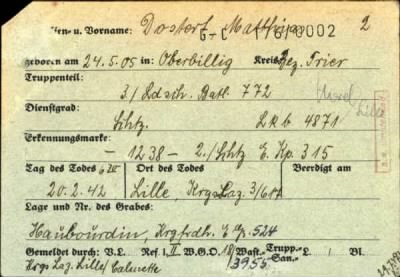 Name u. Vorname: Dostert Matthias 2
G-C 002
geboren am 24.5.05 in: Oberbillig Kreis Bez. Trier
Truppenteil:
3./Ldsch. Batl. 772
Dienstgrad:
Schtz. 4871
Erkennungsmarke:
- 1238 - 2./Schtz E. Kp. 315
Tag des Todes Ort des Todes Beerdigt am
20.2.42 Lille, Krgs Laz. 3/617
Lage und Nr. des Grabes:
Haubourdin, Krg.frdh. 524
Gemeldet durch: V.L. Ref. II W.G.O. 18/ Wast.- Trupp.- San.- L. Bl.
3955
Krgs Laz. Lille/Calmette